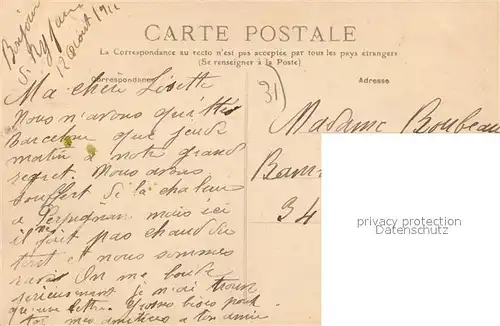 Bonjour
12 août 1911
CARTE POSTALE
La Correspondance au recto n'est pas acceptée par tous les pays étrangers
(Se renseigner à la Poste)
Correspondance
Adresse
31
Ma chère Lisette
Nous n'avons quitté
Barcelone que jeudi
matin à notre grand
regret. Nous avons
souffert de la chaleur
à Perpignan mais ici
il ne fait pas chaud du
tout et nous sommes
ravis On me
sérieusement je n'ai
qu'une lettre. Grosses bises pour
toi mes amitiés à ton amie
Madame Boubeau
34
privacy protection
Versand ohne
Wasserzeichen